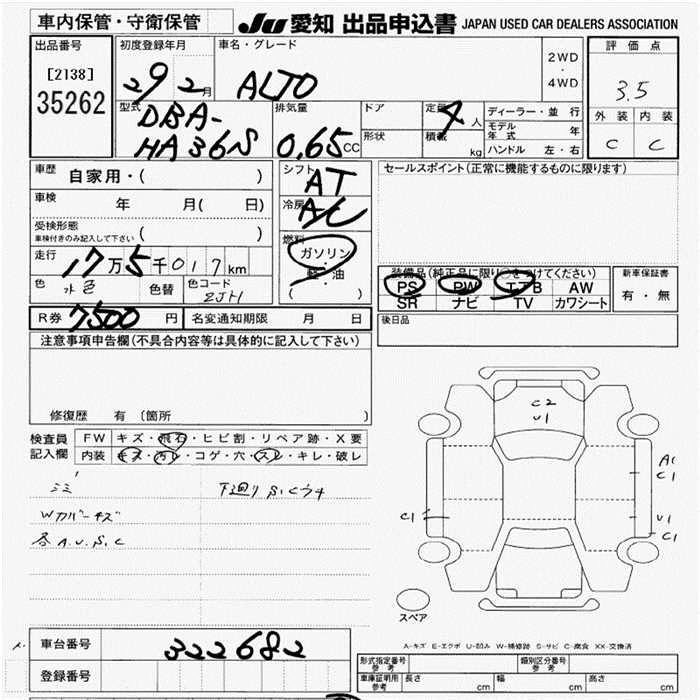 車内保管・守衛保管
JU 愛知 出品申込書 JAPAN USED CAR DEALERS ASSOCIATION
出品番号
[2138]
35262
初度登録年月
29 2月
車名・グレード
ALTO
2WD
・
4WD
評価点
3.5
外装 内装
C C
型式
DBA-
HA36S
排気量
0.65CC
ドア
形状
定員 4人
積載 kg
ディーラー・並行
モデル年式 年
ハンドル 左・右
車歴
自家用・( )
車検 年 月( 日)
受検形態
車検付きのみ記入して下さい ( )
走行 17万5千017km
色
色替
色コード
ZJH
シフト
AT
冷房
A/C
燃料
ガソリン
軽・油
( )
セールスポイント(正常に機能するものに限ります)
装備品(純正品に限り○をつけてください)
PS PW エアB AW
SR ナビ TV カワシート
新車保証書
有・無
R券 7500円
名変通知期限 月 日
後日品
注意事項申告欄(不具合内容等は具体的に記入して下さい)
修復歴 有 〔箇所 〕
検査員
記入欄
FW キズ・飛石・ヒビ割・リペア跡・X要
内装 キズ・汚レ・コゲ・穴・スレ・キレ・破レ
下廻り S.Cウチ
Wカバーキズ
各A.U.S.C
C2
U1
A1
C1
C1
U1
C1
スペア
A-キズ E-エクボ U-凹み W-補修跡 S-サビ C-腐食 XX-交換済
車台番号 322682
登録番号
形式指定番号
参考
類別区分番号
参考
車庫証明用
参考
長さ cm 幅 cm 高さ cm